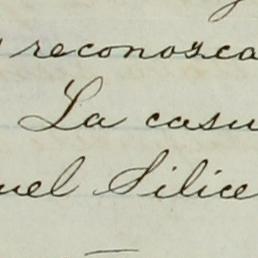 reconozca
La casu
uel Silice